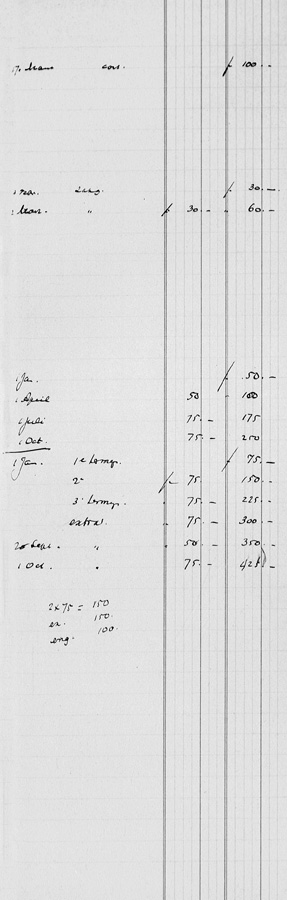 17 Maart cont. f 100.-
1 Nov. f 30.-
1 Maart. " f 30.- 60.-
1 Jan. f 50.-
1 April 50 100
1 Juli 75.- 175
1 Oct. 75.- 250
1 Jan. 1e f 75.-
2e f 75. 150.-
3e 75.- 225.-
extra. 75.- 300.-
20 Sept. " 50.- 350.-
1 Oct. " 75.- 425.-
2 x 75 = 150
ex. 150.
eng. 100.